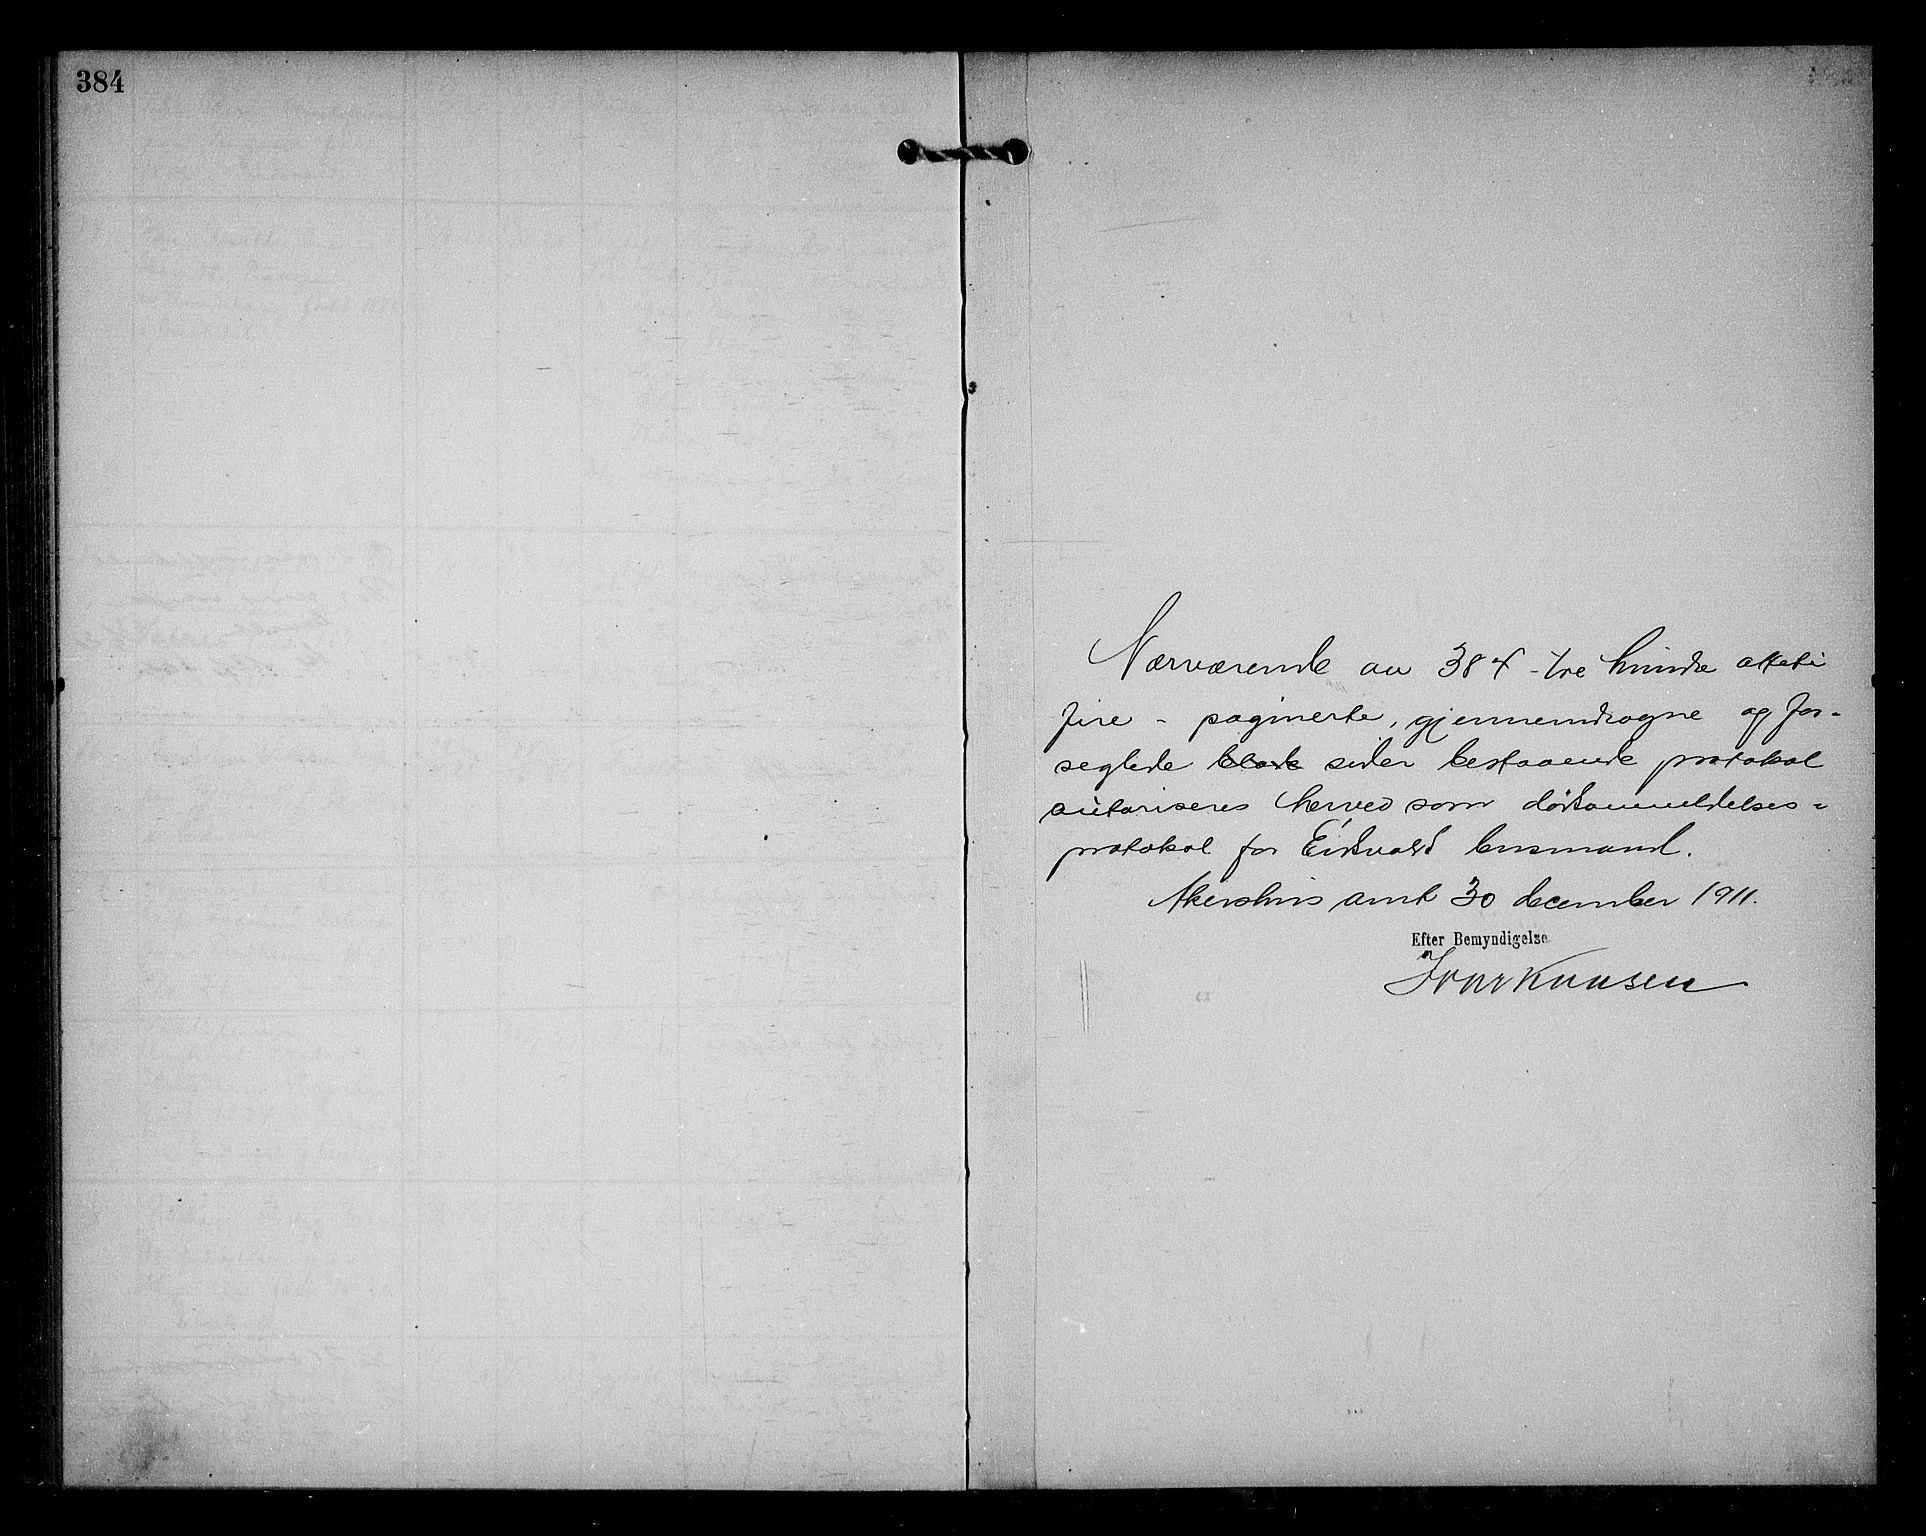 384
Nærværende av 384 - tre hundre otteti
fire - paginerte, gjennemdragne og for-
seglede blade sider bestaaende protokol
autoriseres herved som dødsanmeldelses-
protokol for Eidsvold lensmand.
Akershus amt 30 december 1911.
Efter Bemyndigelse
Ivar Knudsen